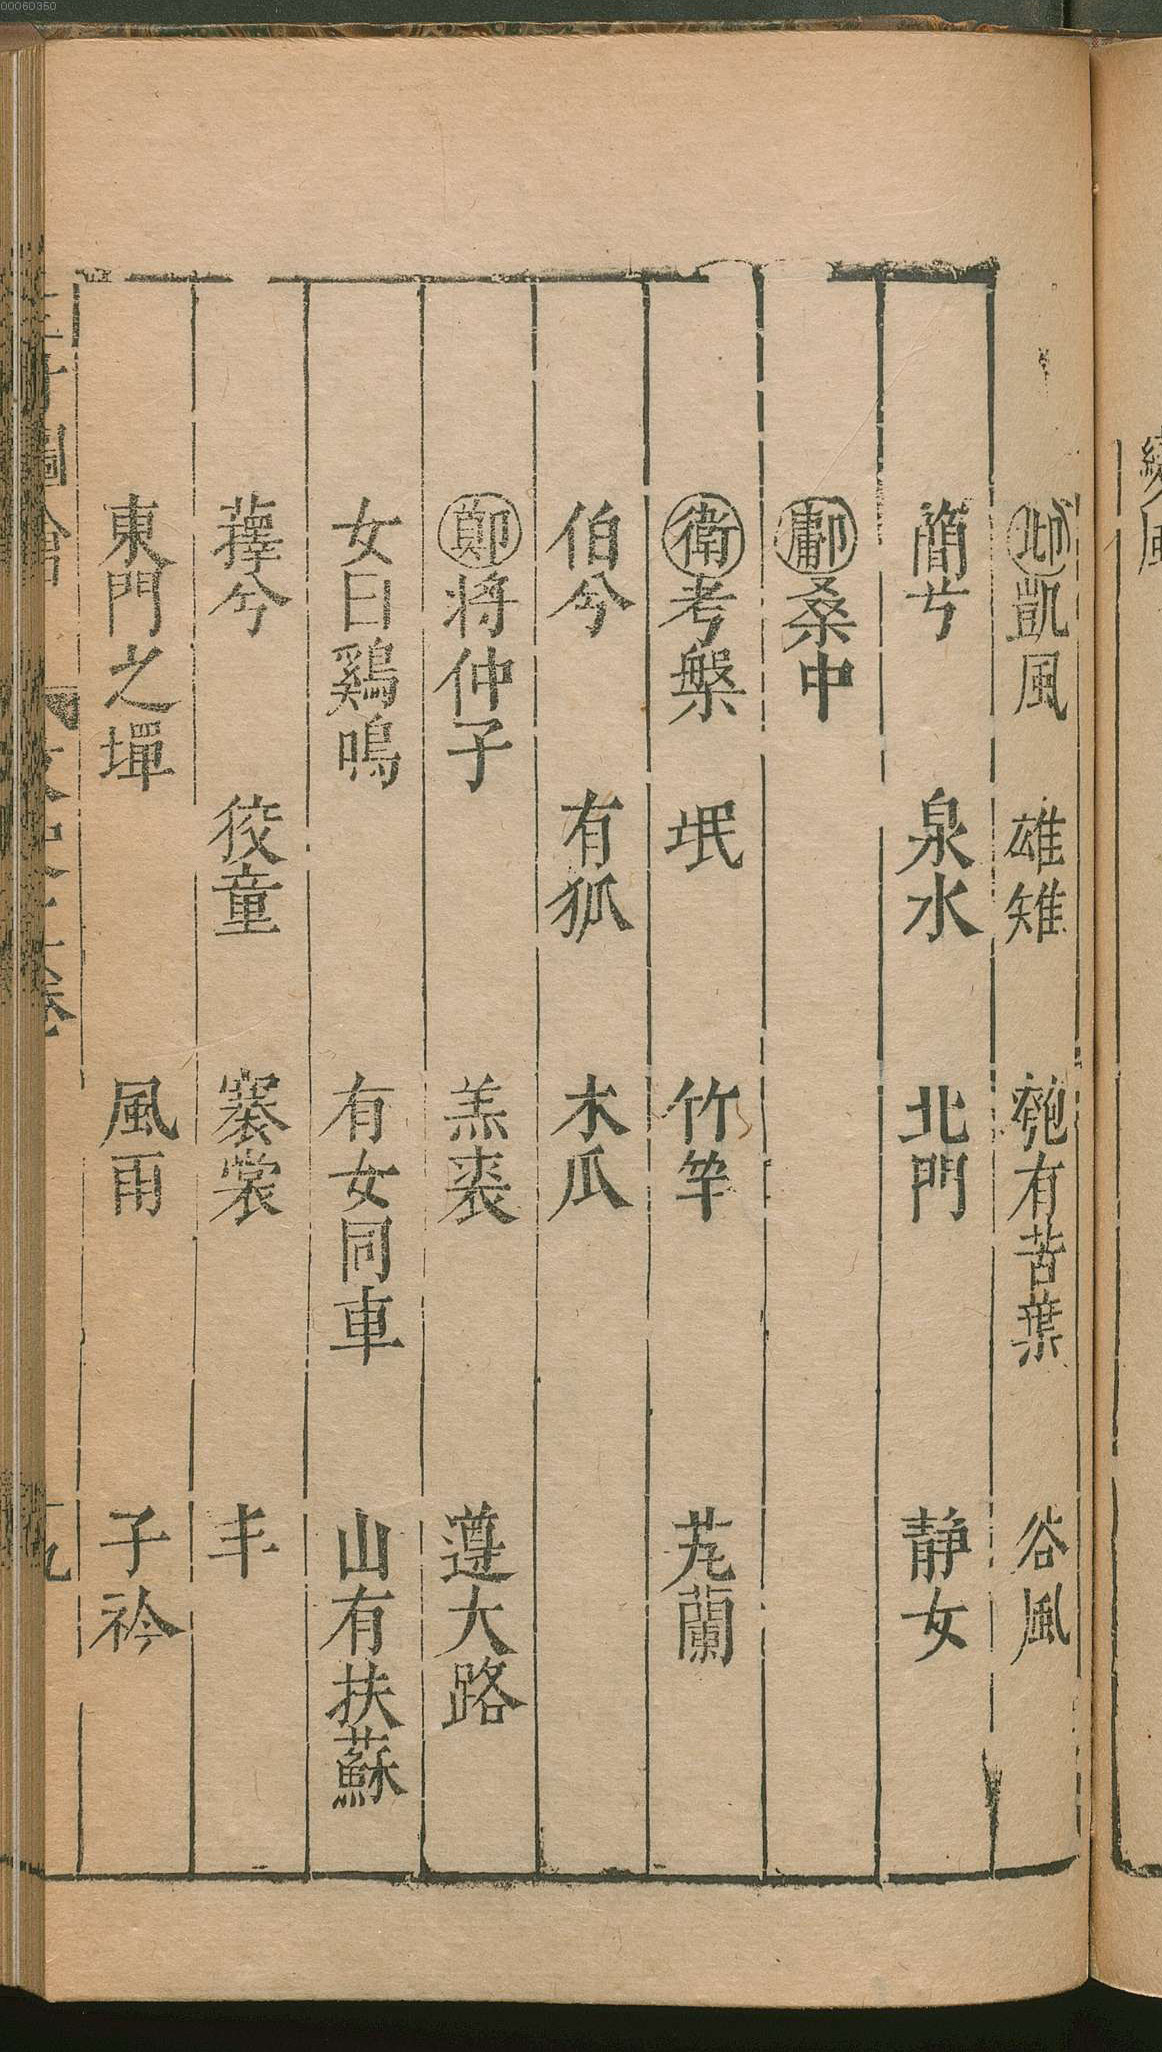 00060350
變風
邶凱風 雄雉 匏有苦葉 谷風
簡兮 泉水 北門 静女
鄘桑中
衛考槃 氓 竹竿 芄蘭
伯兮 有狐 木瓜
鄭將仲子 羔裘 遵大路
女曰鷄鳴 有女同車 山有扶蘇
蘀兮 狡童 褰裳 丰
東門之墠 風雨 子衿